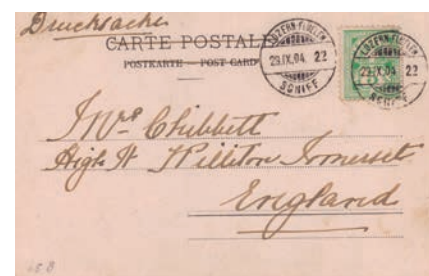 Drucksache
CARTE POSTALE
POSTKARTE — POST CARD
LUZERN-FLÜELEN
29.IX.04 22
SCHIFF
LUZERN-FLÜELEN
29.IX.04 22
SCHIFF
Mrs Chibbett
High St Williton Somerset
England